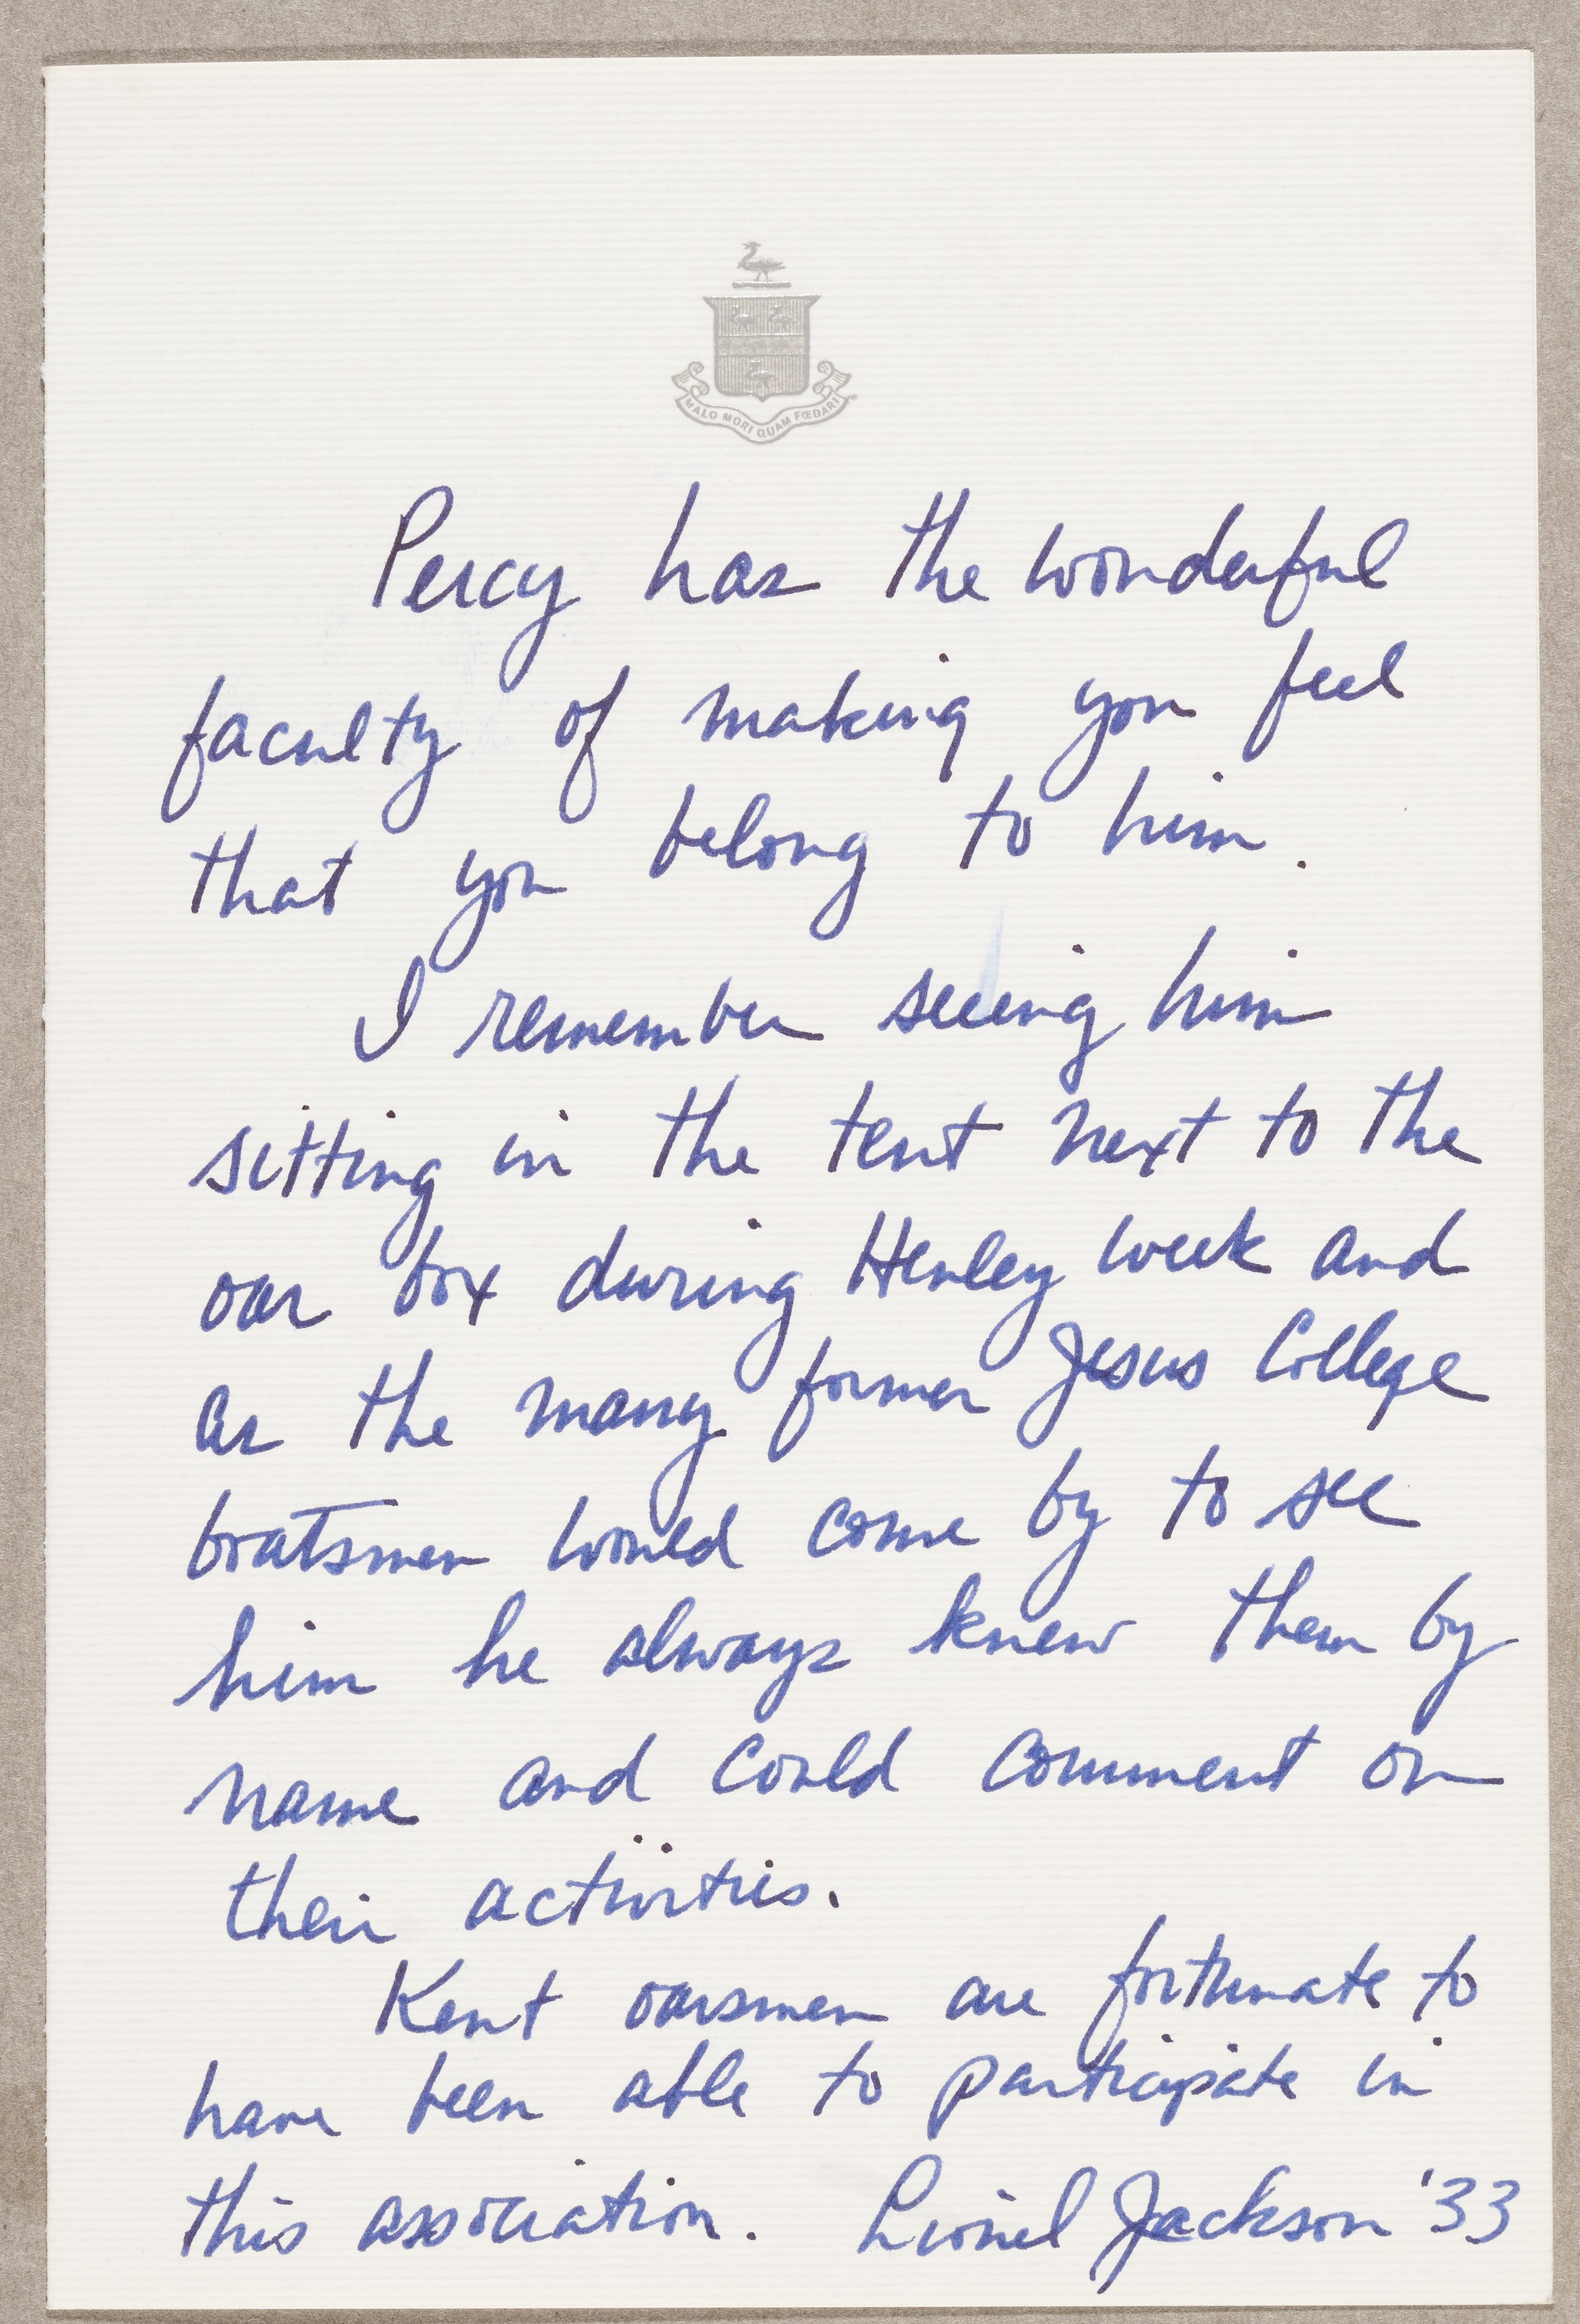 MALO MORI QUAM FŒDARI
Percy has the wonderful
faculty of making you feel
that you belong to him.
I remember seeing him
sitting in the tent next to the
oar box during Henley week and
as the many former Jesus College
boatsmen would come by to see
him he always knew them by
name and could comment on
their activities.
Kent oarsmen are fortunate to
have been able to participate in
this association. Lionel Jackson '33